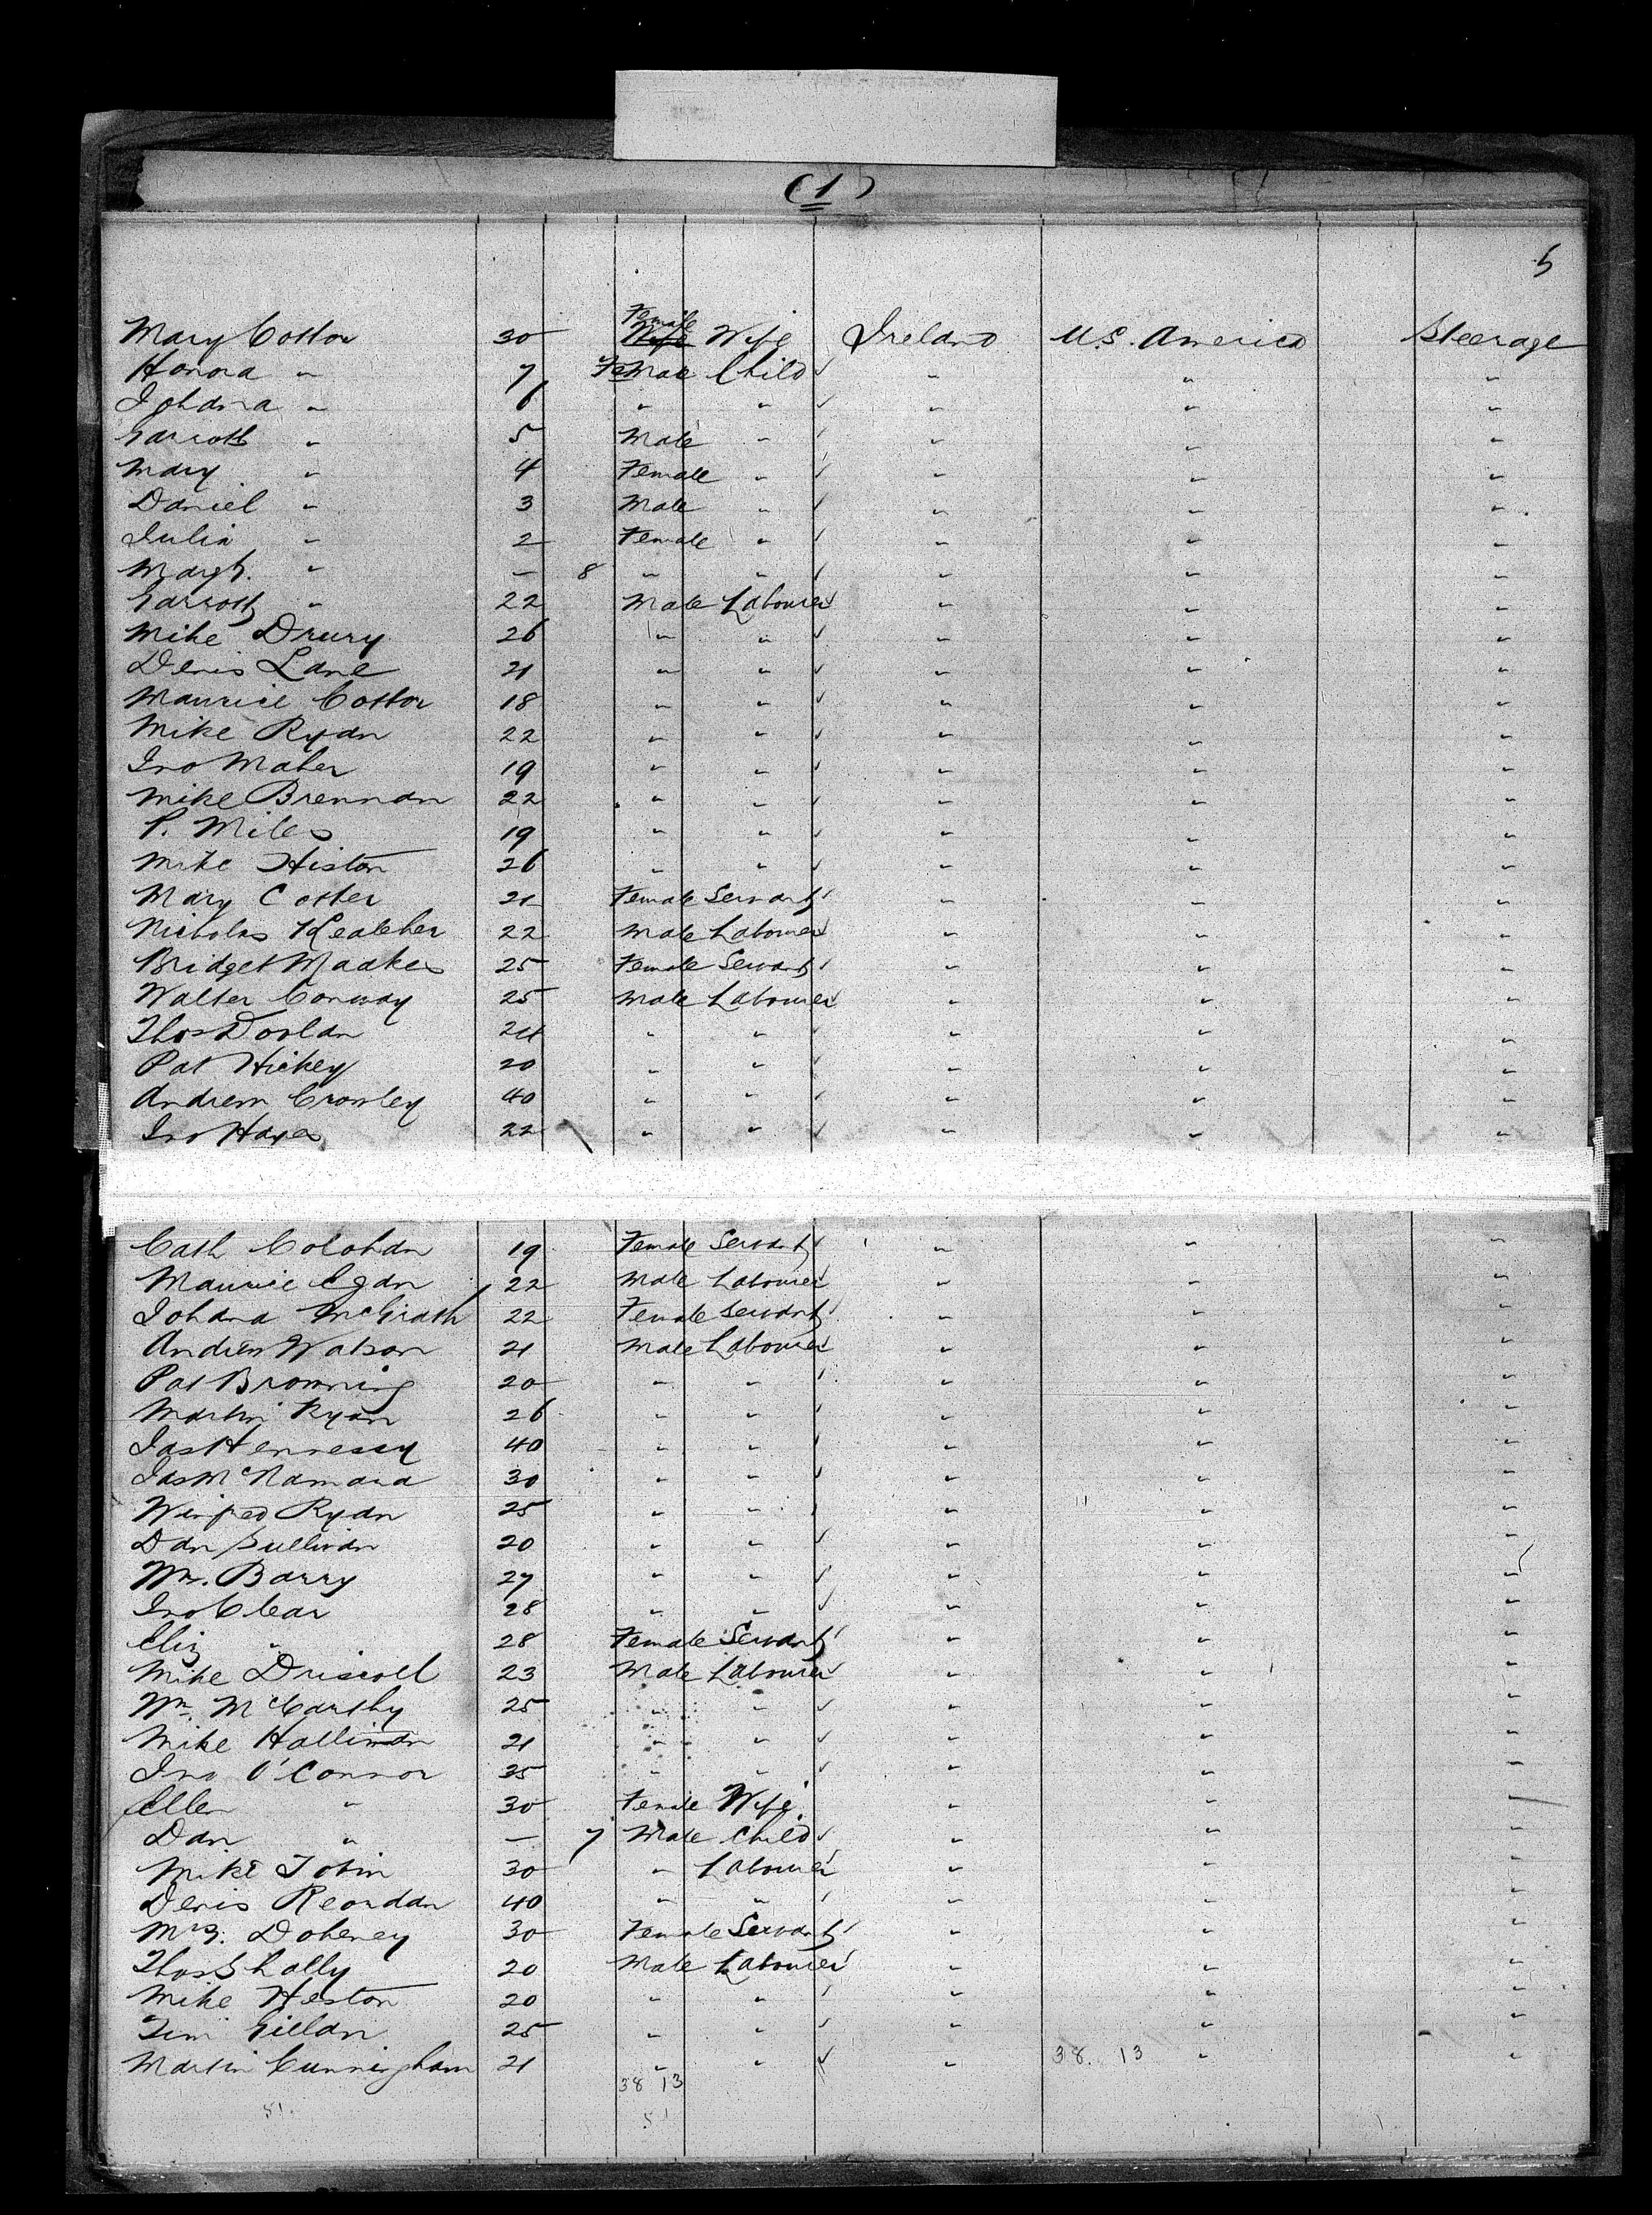 (1)
5
Mary Cottor 30 Female Wife Wife Ireland U.S. America Steerage
Honora " 7 Female Child " " "
Johana " 6 " " " " "
Garrott " 5 Male " " " "
Mary " 4 Female " " " "
Daniel " 3 Male " " " "
Julia " 2 Female " " " "
Margt. " — 8 " " " " "
Garrott " 22 Male Labourer " " "
Mike Drury 26 " " " " "
Denis Lane 21 " " " " "
Maurice Cottor 18 " " " " "
Mike Ryan 22 " " " " "
Jno Maher 19 " " " " "
Mike Brennan 22 " " " " "
P. Miles 19 " " " " "
Mike Histon 26 " " " " "
Mary Cotter 21 Female Servant " " "
Nicholas Kealeher 22 Male Labourer " " "
Bridget 25 Female Servant " " "
Walter Conway 25 Male Labourer " " "
Thos Doolan 24 " " " " "
Pat Hickey 20 " " " " "
Andrew Crowley 40 " " " " "
Jno Hayes 22 " " " " "
Cath Colohan 19 Female Servant " " "
Maurice Egan 22 Male Labourer " " "
Johana McGrath 22 Female Servant " " "
Andrew Watson 21 Male Labourer " " "
Pat Browning 20 " " " " "
Martin Ryan 26 " " " " "
Jas Hennessy 40 " " " " "
Jas McNamara 30 " " " " "
Winfred Ryan 25 " " " " "
Dan Sullivan 20 " " " " "
Wm. Barry 27 " " " " "
Jno Clear 28 " " " " "
Eliz " 28 Female Servant " " "
Mike Driscoll 23 Male Labourer " " "
Wm. McCarthy 25 " " " " "
Mike Hallinan 21 " " " " "
Jno O'Connor 35 " " " " "
Ellen " 30 Female Wife " " "
Dan " — 7 Male Child " " "
Mike Tobin 30 " Labourer " " "
Denis Reordan 40 " " " " "
Mrs. Doheney 30 Female Servant " " "
Thos Shally 20 Male Labourer " " "
Mike Heston 20 " " " " "
Tim Gillan 25 " " " " "
Martin Cunningham 21 " " " 38. 13 " "
38 13
51. 51